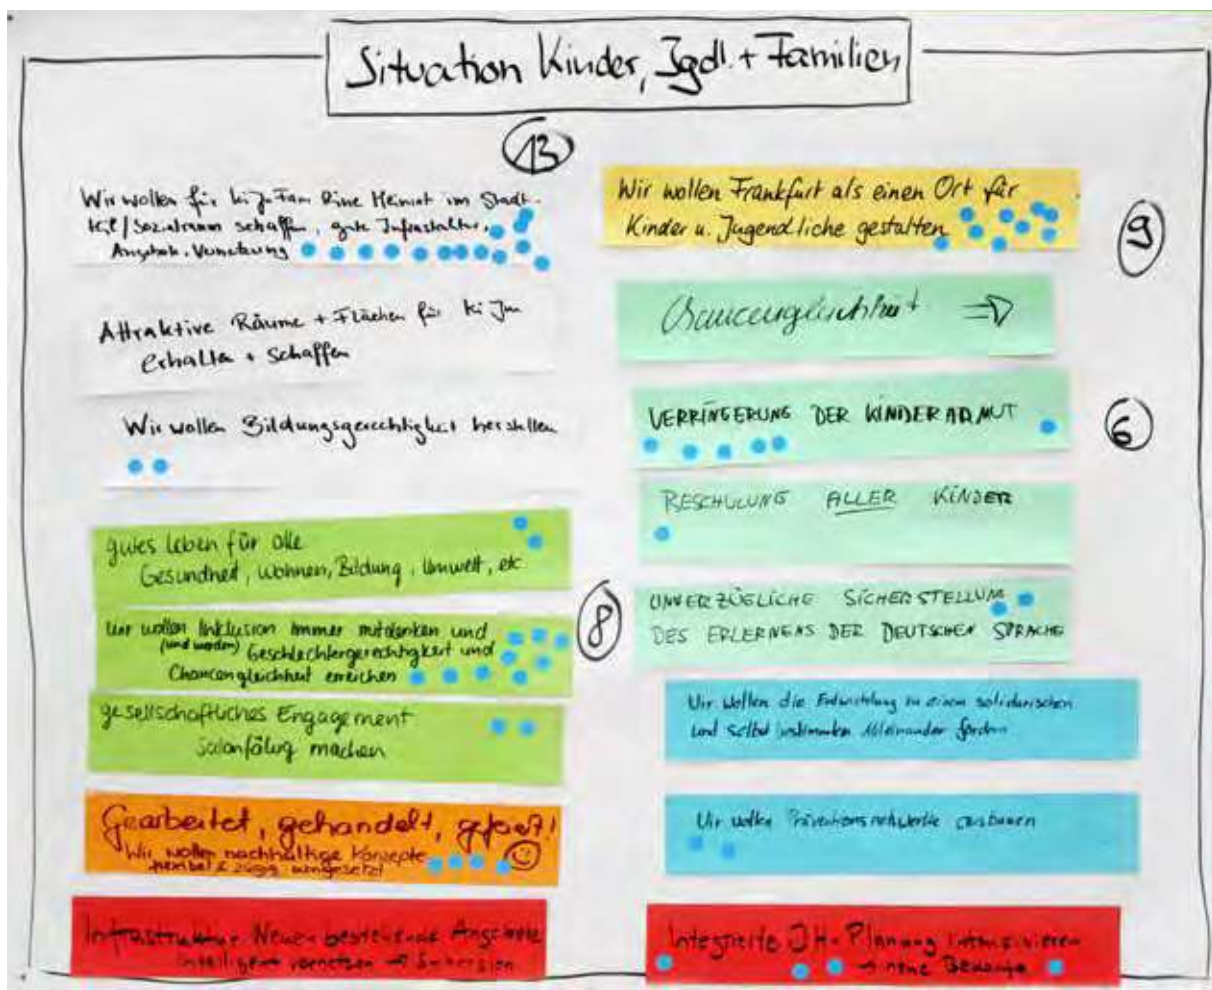 Situation Kinder, Jgdl. + Familien
13
Wir wollen für Ki Ju Fam eine Heimat im Stadt-
teil/Sozialraum schaffen, gute Infrastruktur,
Angebote, Vernetzung
Attraktive Räume + Flächen für Ki Ju
erhalten + schaffen
Wir wollen Bildungsgerechtigkeit herstellen
gutes Leben für alle
Gesundheit, Wohnen, Bildung, Umwelt, etc
8
Wir wollen Inklusion immer mitdenken und
(und werden) Geschlechtergerechtigkeit und
Chancengleichheit erreichen
gesellschaftliches Engagement
salonfähig machen
Gearbeitet, gehandelt,
Wir wollen nachhaltige Konzepte
flexibel & zügig umgesetzt
Infrastruktur Neue + bestehende Angebote
intelligent vernetzen →
Wir wollen Frankfurt als einen Ort für
Kinder u. Jugendliche gestalten
9
Chancengleichheit ⇒
VERRINGERUNG DER KINDERARMUT
6
BESCHULUNG ALLER KINDER
UNVERZÜGLICHE SICHERSTELLUNG
DES ERLERNENS DER DEUTSCHEN SPRACHE
Wir wollen die Entwicklung zu einem solidarischen
und selbstbestimmten Miteinander fördern
Wir wollen Präventionsnetzwerke ausbauen
Integrierte JH-Planung intensivieren
→ neue Bedarfe